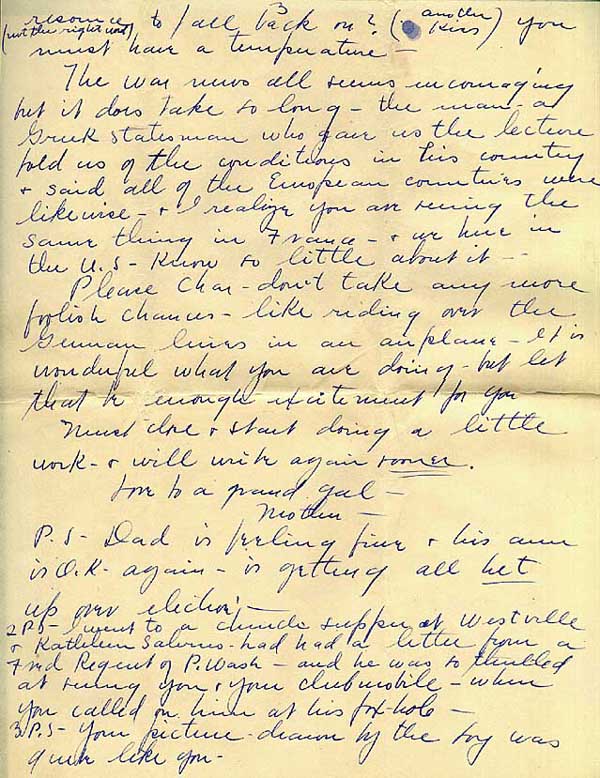 resource to fall back on? (another Kiss) you
(not the right word)
must have a temperature -
The war news all seems encouraging
but it does take so long - the man - a
Greek statesman who gave us the lecture
told us of the conditions in his country
+ said all of the European countries were
likewise - + I realize you are seeing the
same thing in France - + we here in
the U.S - Know so little about it --
Please Char - don't take any more
foolish chances - like riding over the
German lines in an airplane - It is
wonderful what you are doing - but let
that be enough excitement for you
Must close + start doing a little
work - + will write again sooner.
Love to a grand gal -
Mother -
P.S - Dad is feeling fine + his arm
is O.K. again - is getting all het
up over election -
2 P.S - I went to a church supper at Westville
+ Kathleen Salerno - had had a letter from a
Fred Regent of P. Wash - and he was so thrilled
at seeing you + your clubmobile - when
you called on him at his fox-hole -
3 P.S - Your picture - drawn by the boy was
quite like you -